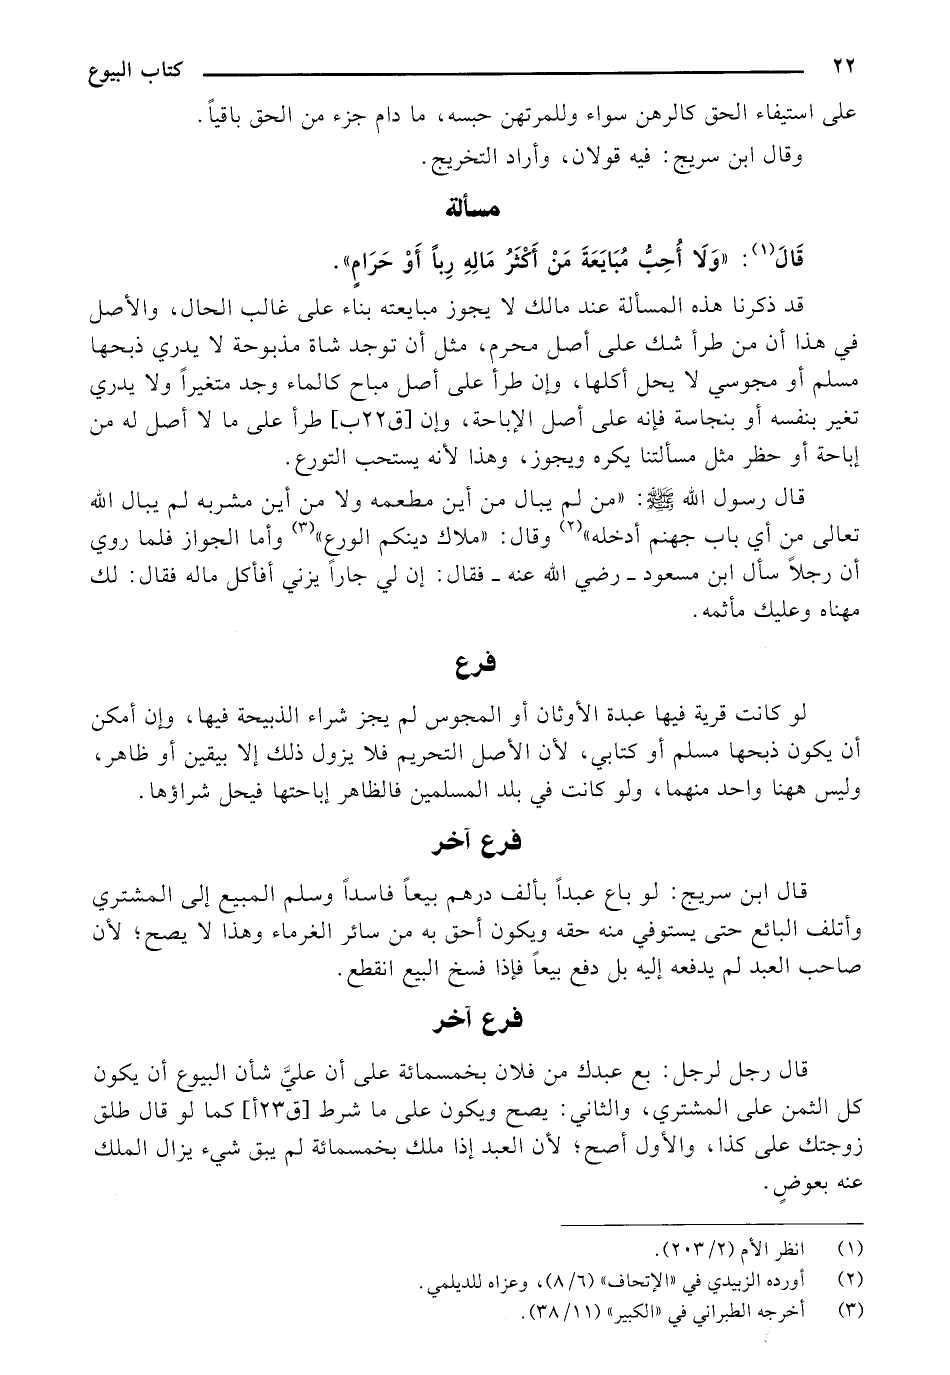 ٢٢ كتاب البيوع
على استيفاء الحق كالرهن سواء وللمرتهن حبسه، ما دام جزء من الحق باقياً.
وقال ابن سريج: فيه قولان، وأراد التخريج.
مسألة
قَالَ(١): «وَلَا أُحِبُّ مُبَايَعَةَ مَنْ أَكْثَرُ مَالِهِ رِباً أَوْ حَرَامٍ».
قد ذكرنا هذه المسألة عند مالك لا يجوز مبايعته بناء على غالب الحال، والأصل
في هذا أن من طرأ شك على أصل محرم، مثل أن توجد شاة مذبوحة لا يدري ذبحها
مسلم أو مجوسي لا يحل أكلها، وإن طرأ على أصل مباح كالماء وجد متغيراً ولا يدري
تغير بنفسه أو بنجاسة فإنه على أصل الإباحة، وإن [ق٢٢ب] طرأ على ما لا أصل له من
إباحة أو حظر مثل مسألتنا يكره ويجوز، وهذا لأنه يستحب التورع.
قال رسول الله ﷺ: «من لم يبال من أين مطعمه ولا من أين مشربه لم يبال الله
تعالى من أي باب جهنم أدخله»(٢) وقال: «ملاك دينكم الورع»(٣) وأما الجواز فلما روي
أن رجلاً سأل ابن مسعود ـ رضي الله عنه ـ فقال: إن لي جاراً يزني أفآكل ماله فقال: لك
مهناه وعليك مأثمه.
فرع
لو كانت قرية فيها عبدة الأوثان أو المجوس لم يجز شراء الذبيحة فيها، وإن أمكن
أن يكون ذبحها مسلم أو كتابي، لأن الأصل التحريم فلا يزول ذلك إلا بيقين أو ظاهر،
وليس ههنا واحد منهما، ولو كانت في بلد المسلمين فالظاهر إباحتها فيحل شراؤها.
فرع آخر
قال ابن سريج: لو باع عبداً بألف درهم بيعاً فاسداً وسلم المبيع إلى المشتري
وأتلف البائع حتى يستوفي منه حقه ويكون أحق به من سائر الغرماء وهذا لا يصح؛ لأن
صاحب العبد لم يدفعه إليه بل دفع بيعاً فإذا فسخ البيع انقطع.
فرع آخر
قال رجل لرجل: بع عبدك من فلان بخمسمائة على أن عليَّ شأن البيوع أن يكون
كل الثمن على المشتري، والثاني: يصح ويكون على ما شرط [ق٢٣أ] كما لو قال طلق
زوجتك على كذا، والأول أصح؛ لأن العبد إذا ملك بخمسمائة لم يبق شيء يزال الملك
عنه بعوضٍ.
(١) انظر الأم (٢/ ٢٠٣).
(٢) أورده الزبيدي في «الإتحاف» (٦/ ٨)، وعزاه للديلمي.
(٣) أخرجه الطبراني في «الكبير» (١١/ ٣٨).